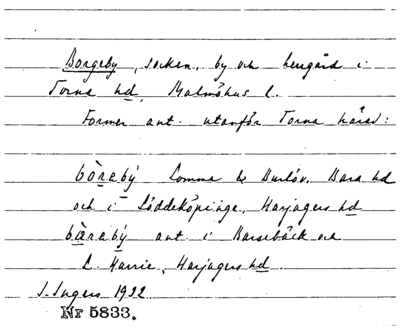 Borgeby, socken, by och herrgård i
Torna hd, Malmöhus l.
Former ant. utanför Torna härad:
bòrebý Lomma & Burlöv, Bara hd
och i Löddeköpinge, Harjagers hd
bàrabý ant. i Barsebäck och
L. Harrie, Harjagers hd.
I. Ingers 1922
Nr 5833.